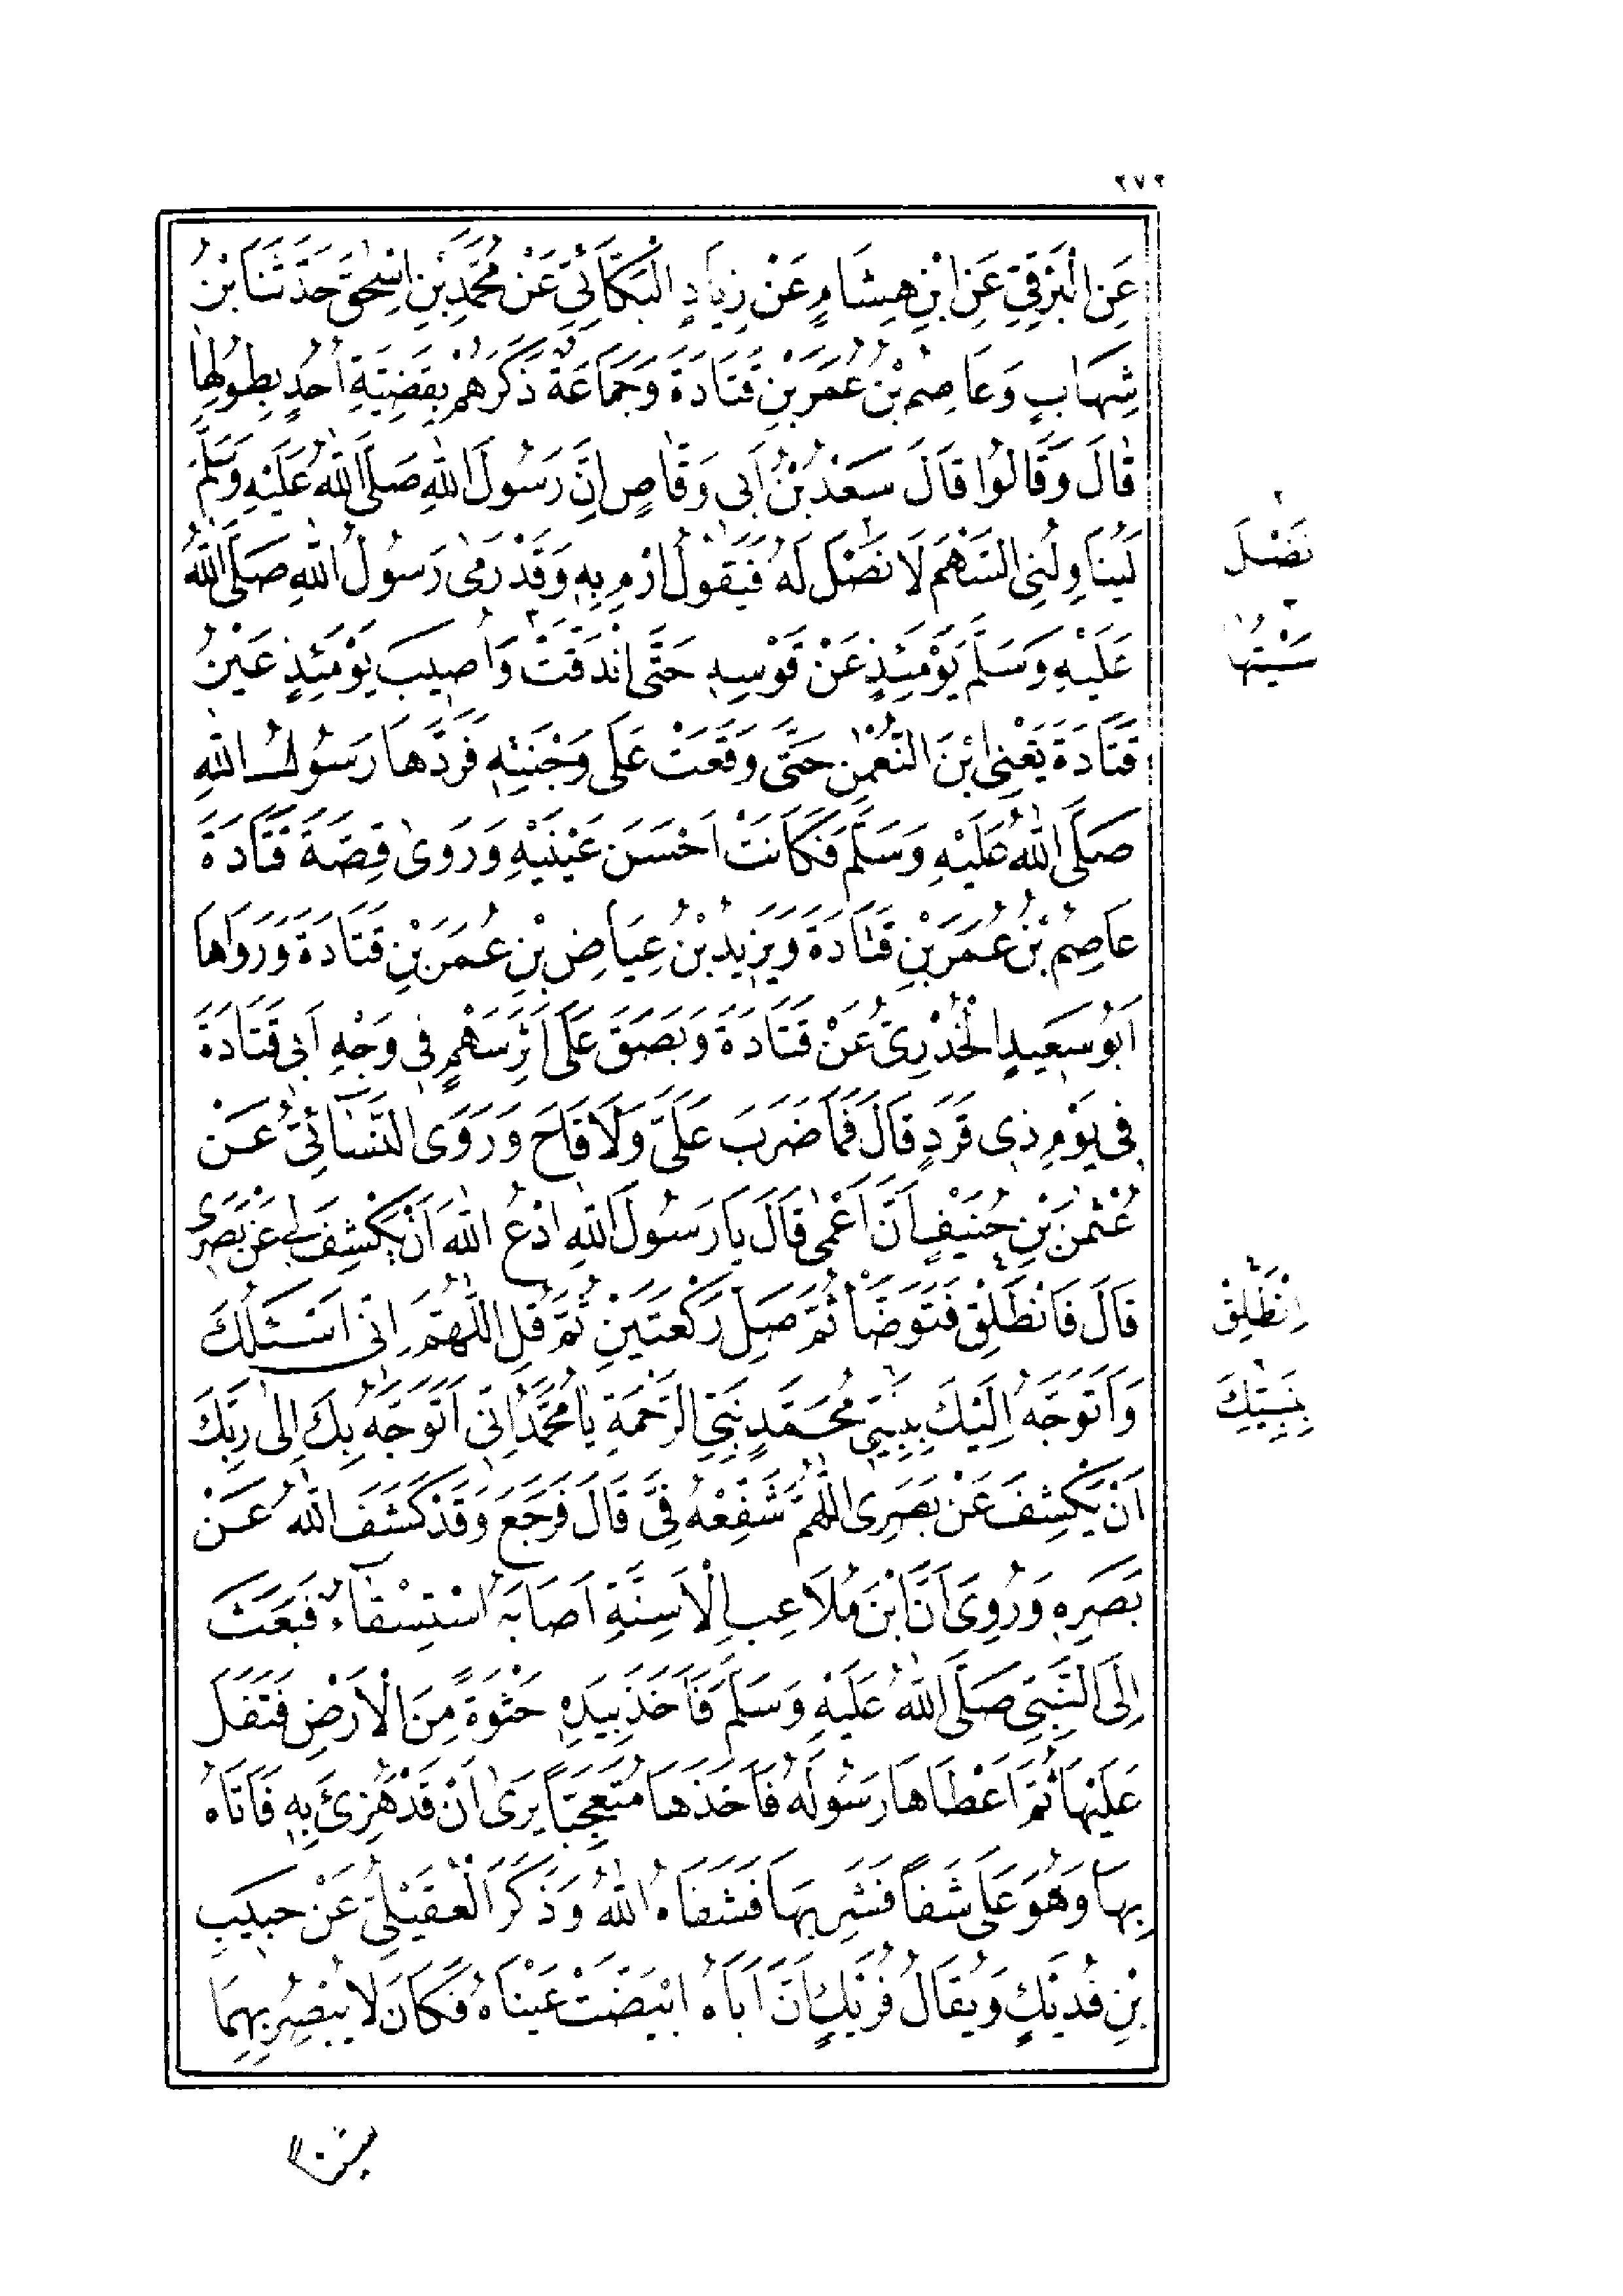 ٢٧٢
عَنِ الْبَرْقِيِّ عَنِ ابْنِ هِشَامٍ عَنْ زِيَادٍ الْبَكَّائِيِّ عَنْ مُحَمَّدِ بْنِ اِسْحٰقَ حَدَّثَنَا ابْنُ
شِهَابٍ وَعَاصِمُ بْنُ عُمَرَ بْنِ قَتَادَةَ وَجَمَاعَةٌ ذَكَرَهُمْ بِقَضِيَّةِ اُحُدٍ بِطُولِهَا
قَالَ وَقَالُوا قَالَ سَعْدُ بْنُ اَبِى وَقَّاصٍ اِنَّ رَسُولَ اللهِ صَلَّى اللهُ عَلَيْهِ وَسَلَّمَ
لَيُنَاوِلُنِى السَّهْمَ لَا نَصْلَ لَهُ فَيَقُولُ ارْمِ بِهِ وَقَدْ رَمٰى رَسُولُ اللهِ صَلَّى اللهُ
عَلَيْهِ وَسَلَّمَ يَوْمَئِذٍ عَنْ قَوْسِهِ حَتَّى انْدَقَّتْ وَاُصِيبَ يَوْمَئِذٍ عَيْنُ
قَتَادَةَ يَعْنِى ابْنَ النُّعْمٰنِ حَتَّى وَقَعَتْ عَلَى وَجْنَتِهِ فَرَدَّهَا رَسُولُ اللهِ
صَلَّى اللهُ عَلَيْهِ وَسَلَّمَ فَكَانَتْ اَحْسَنَ عَيْنَيْهِ وَرَوٰى قِصَّةَ قَتَادَةَ
عَاصِمُ بْنُ عُمَرَ بْنِ قَتَادَةَ وَيَزِيدُ بْنُ عِيَاضِ بْنِ عُمَرَ بْنِ قَتَادَةَ وَرَوَاهَا
اَبُو سَعِيدٍ الْخُدْرِىُّ عَنْ قَتَادَةَ وَبَصَقَ عَلَى اَثَرِ سَهْمٍ فِى وَجْهِ اَبِى قَتَادَةَ
فِى يَوْمِ ذِى قَرَدٍ قَالَ فَمَا ضَرَبَ عَلَىَّ وَلَا قَاحَ وَرَوَى النَّسَائِىُّ عَنْ
عُثْمٰنَ بْنِ حُنَيْفٍ اَنَّ اَعْمٰى قَالَ يَا رَسُولَ اللهِ ادْعُ اللهَ اَنْ يَكْشِفَ لِى عَنْ بَصَرِى
قَالَ فَانْطَلِقْ فَتَوَضَّأْ ثُمَّ صَلِّ رَكْعَتَيْنِ ثُمَّ قُلِ اللّٰهُمَّ اِنِّى اَسْئَلُكَ
وَاَتَوَجَّهُ اِلَيْكَ بِنَبِيِّى مُحَمَّدٍ نَبِىِّ الرَّحْمَةِ يَا مُحَمَّدُ اِنِّى اَتَوَجَّهُ بِكَ اِلٰى رَبِّكَ
اَنْ يَكْشِفَ عَنْ بَصَرِى اللّٰهُمَّ شَفِّعْهُ فِىَّ قَالَ فَرَجَعَ وَقَدْ كَشَفَ اللهُ عَنْ
بَصَرِهِ وَرُوِىَ اَنَّ ابْنَ مُلَاعِبِ الْاَسِنَّةِ اَصَابَهُ اسْتِسْقَاءٌ فَبَعَثَ
اِلَى النَّبِىِّ صَلَّى اللهُ عَلَيْهِ وَسَلَّمَ فَاَخَذَ بِيَدِهِ حَثْوَةً مِنَ الْاَرْضِ فَتَفَلَ
عَلَيْهَا ثُمَّ اَعْطَاهَا رَسُولَهُ فَاَخَذَهَا مُتَعَجِّبًا يَرٰى اَنْ قَدْ هُزِئَ بِهِ فَاَتَاهُ
بِهَا وَهُوَ عَلَى شَفًا فَشَرِبَهَا فَشَفَاهُ اللهُ وَذَكَرَ الْعُقَيْلِىُّ عَنْ حَبِيبِ
بْنِ فُدَيْكٍ وَيُقَالُ فُرَيْكٍ اَنَّ اَبَاهُ ابْيَضَّتْ عَيْنَاهُ فَكَانَ لَا يُبْصِرُ بِهِمَا
نَصْلَ
سِيَتُهَا
اِنْطَلِقْ
بِنَبِيِّكَ